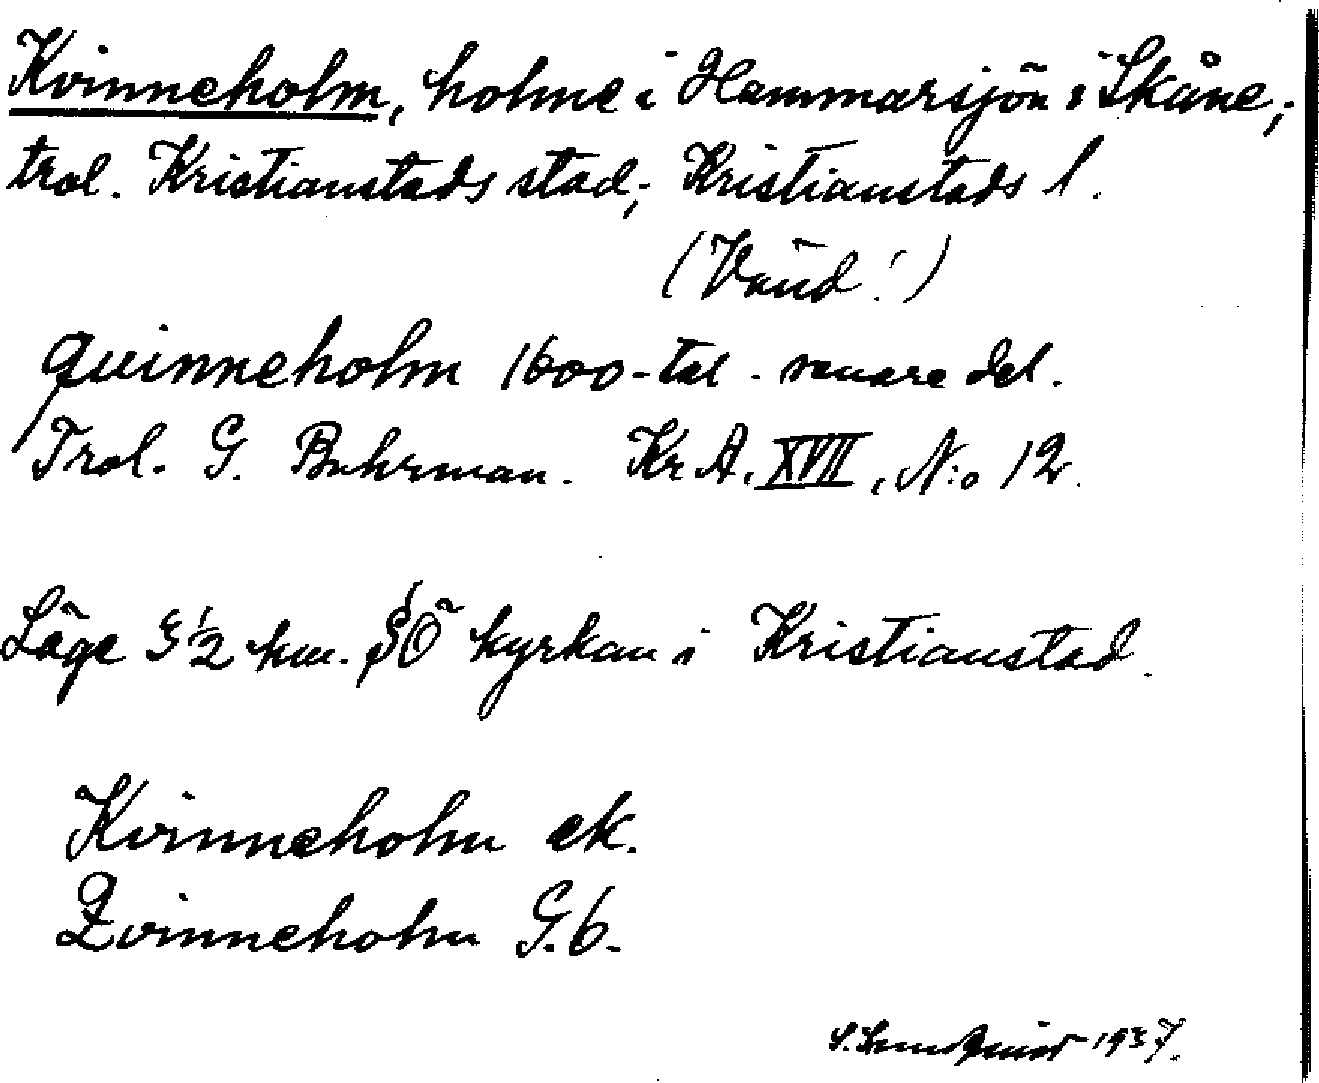 Kvinneholm, holme i Hammarsjön i Skåne;
trol. Kristianstads stad; Kristianstads l.
(Vänd!)
Quinneholm 1600-tal. senare del.
Trol. G. Buhrman. Kr A. XVII, N:o 12.
Läge 3 1/2 km. SÖ kyrkan i Kristianstad.
Kvinneholm ek.
Qvinneholm G.b.
1937.